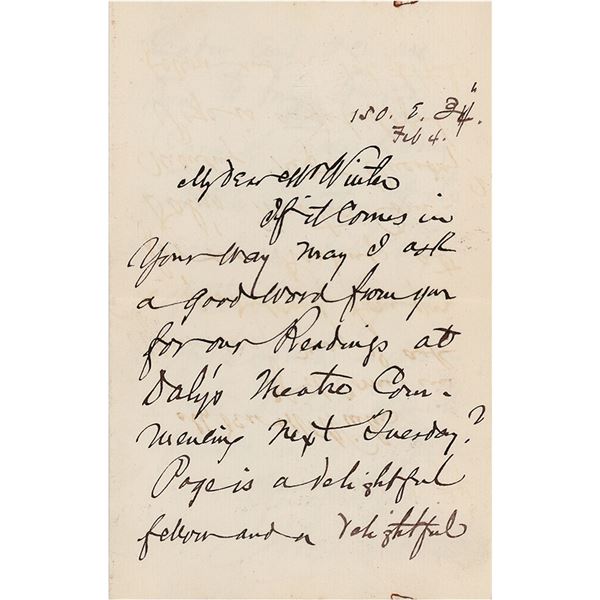 150. E. 34".
Feb 4.
My dear Mr Winter
If it Comes in
Your way may I ask
a good word from you
for our Readings at
Daly's Theatre Com-
mencing next Tuesday?
Page is a delightful
fellow and a delightful